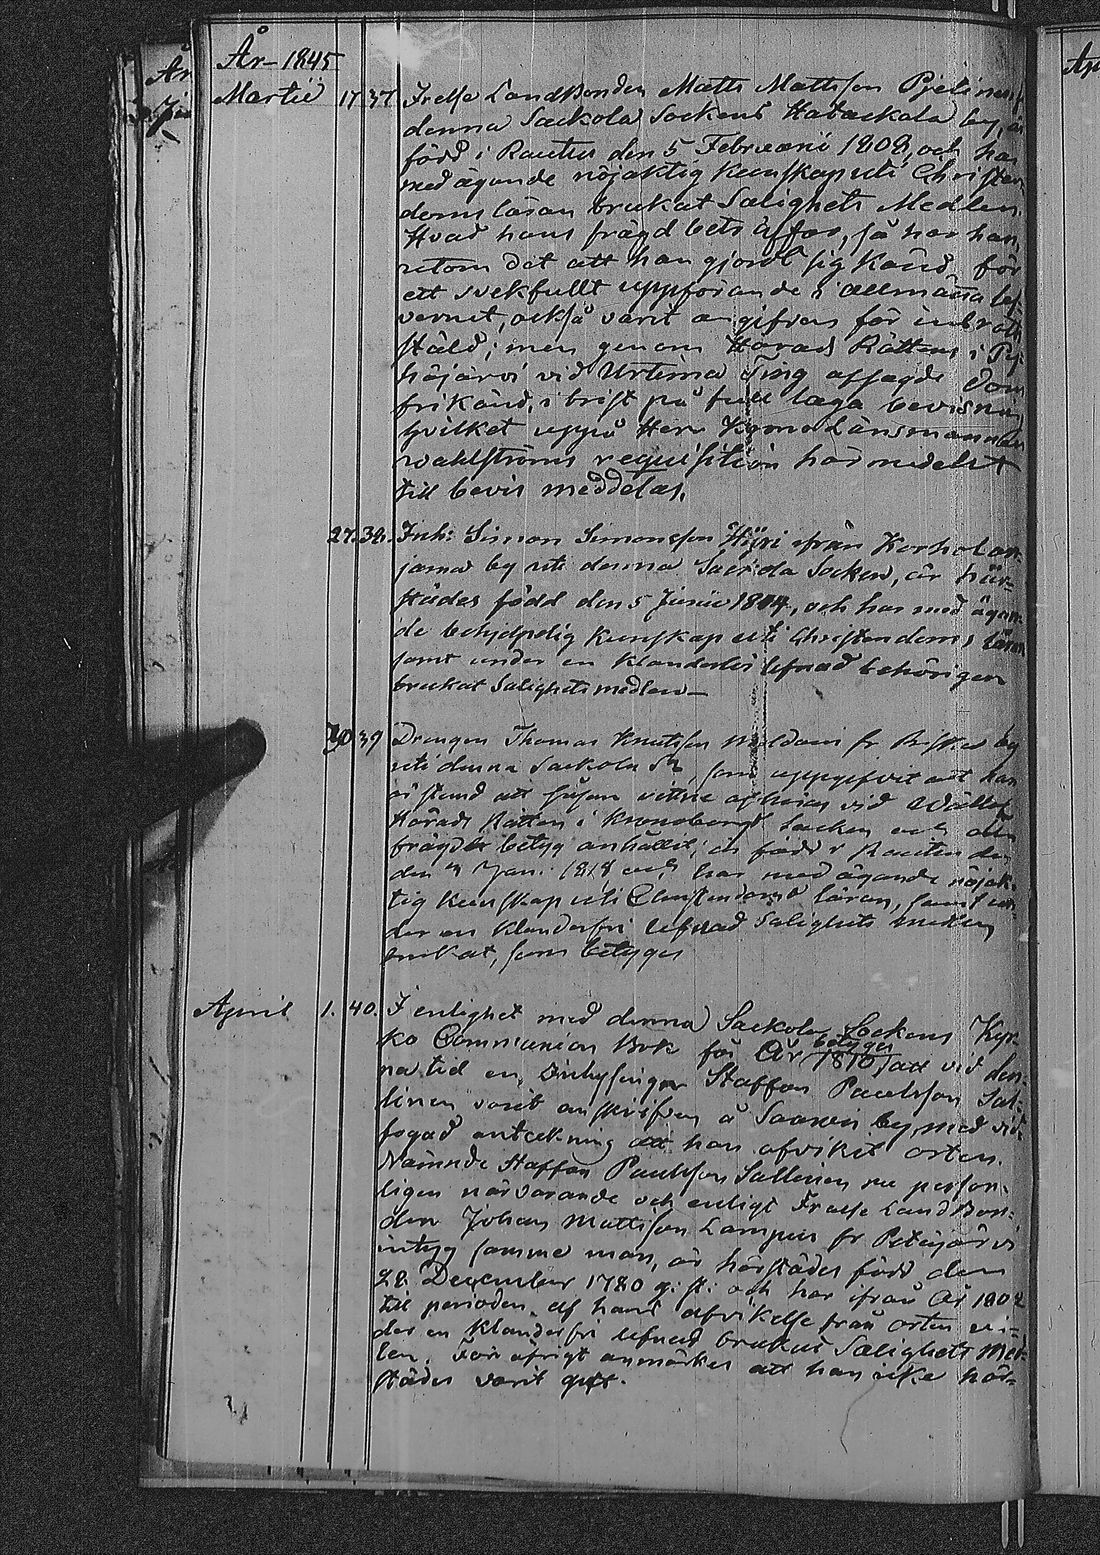 År 1845
Martii 17 37 Frelse Landbonden Matts Mattsson Pjelinen i
denna Sackola Sockens Hatackala by, är
född i Rautus den 5 Februarii 1808, och har
med ägande nöjaktig kunskap uti Christen
doms läran brukat Salighets Medlen.
Hvad hans frägd bets åffar, så har han,
utom det att han gjordt sig känd för
ett svekfullt uppförande i allmänna lef-
vernet, också varit angifven för inbrotts
stöld; men genom Härads Rättens i Py-
häjärvi vid Urtima Ting afsagde Dom
frikänd, i brist på full laga bevisning
hvilket uppå Herr Krono Länsmannen
Wahlströms requisition härmedelst
till bevis meddelas.
27. 38. Inh: Simon Simonsson Hüri från Korholan
jama by uti denna Sackola Socken, är här-
städes född den 5 Junii 1804, och har med ägan-
de behjelpelig kunskap uti Christendoms läran
samt under en klanderfri lefnad behörigen
brukat Salighetsmedlen
30 39 Drengen Thomas Knutsson fr by
uti denna Sackola Sn, som uppgifvit att han
är stemd att såsom vittne afhöras vid
Härads Rätten i Kronoborgs Socken och om
frägde betyg anhållit; är född i Rautus den
den Jan. 1818 och har med ägande nöjak-
tig kunskap uti Christendoms läran, samt un-
der en klanderfri lefnad Salighets medlen
brukat, som betyges
April 1. 40. I enlighet med denna Sackola Sockens Kyr-
ko Communion Bok för År 1810 betyges att vid den-
na tid en Inhysingen Staffan Paulsson Sal-
linen varit anskrifven å Saaren by, med vid-
fogad anteckning att han afvikit orten.
Nämnde Staffan Paulsson Sallinen nu person-
ligen närvarande och enligt Frelse Land Bon-
den Johan Mattsson Lampus fr Petäjärvi
intyg samme man, är härstädes född den
28 December 1780 g: st: och har ifrån År 1802
till perioden af hans afvikelse från orten un-
der en klanderfri lefnad brukat Salighets Med-
len. För öfrigt anmärkes att han icke här-
städes varit gift.